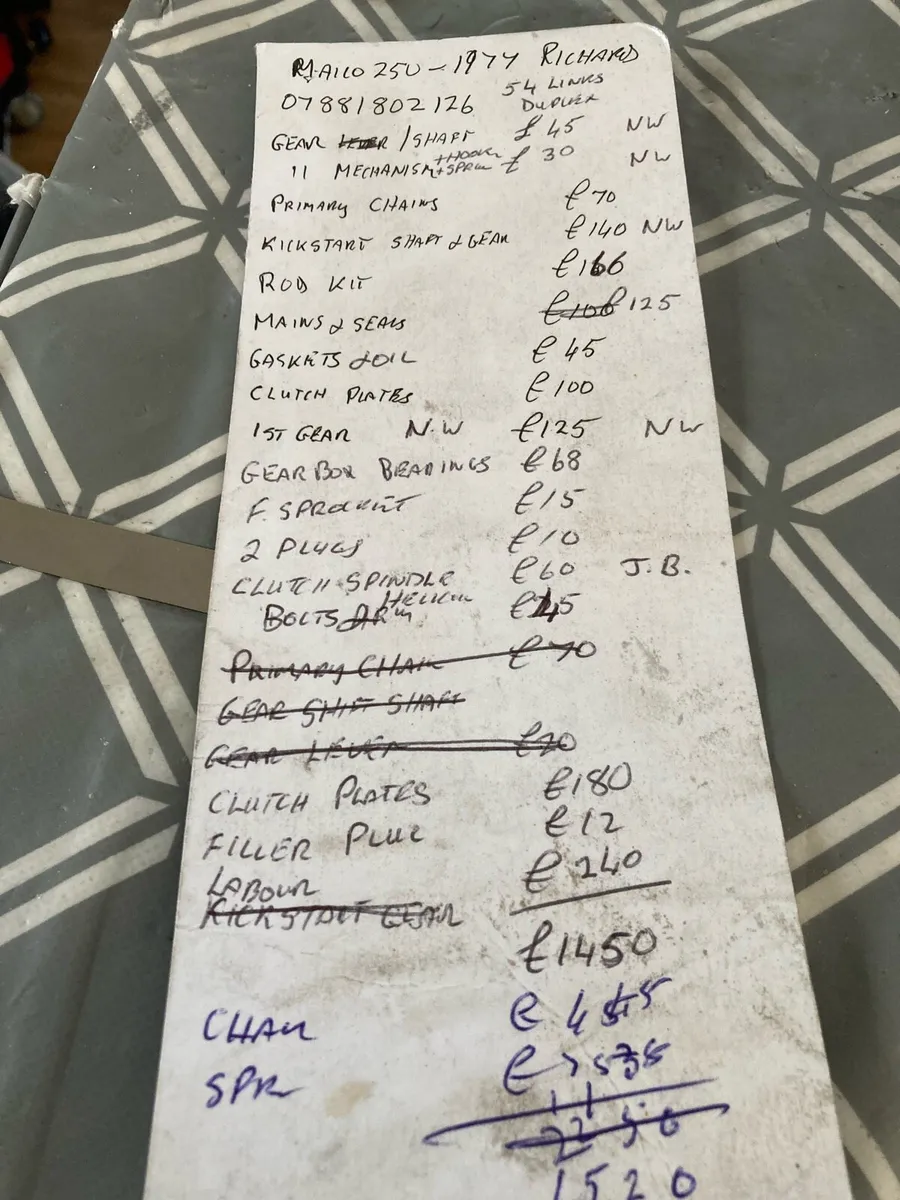 MAICO 250 - 1977 RICHARD
07881802126 54 LINKS
DUPLEX
GEAR LEVER / SHAFT £45 NW
11 MECHANISM + HOOK + SPRING £30 NW
PRIMARY CHAINS £70
KICKSTART SHAFT & GEAR £140 NW
ROD KIT £166
MAINS & SEALS £100 £125
GASKETS & OIL £45
CLUTCH PLATES £100
1ST GEAR N.W £125 NW
GEARBOX BEARINGS £68
F. SPROCKET £15
2 PLUGS £10
CLUTCH SPINDLE £60 J.B.
BOLTS
PRIMARY CHAIN £70
GEAR SHIFT SHAFT
GEAR LEVER £20
CLUTCH PLATES £180
FILLER PLUG £12
LABOUR £240
KICKSTART GEAR
£1450
CHAIN £
SPR £
1520